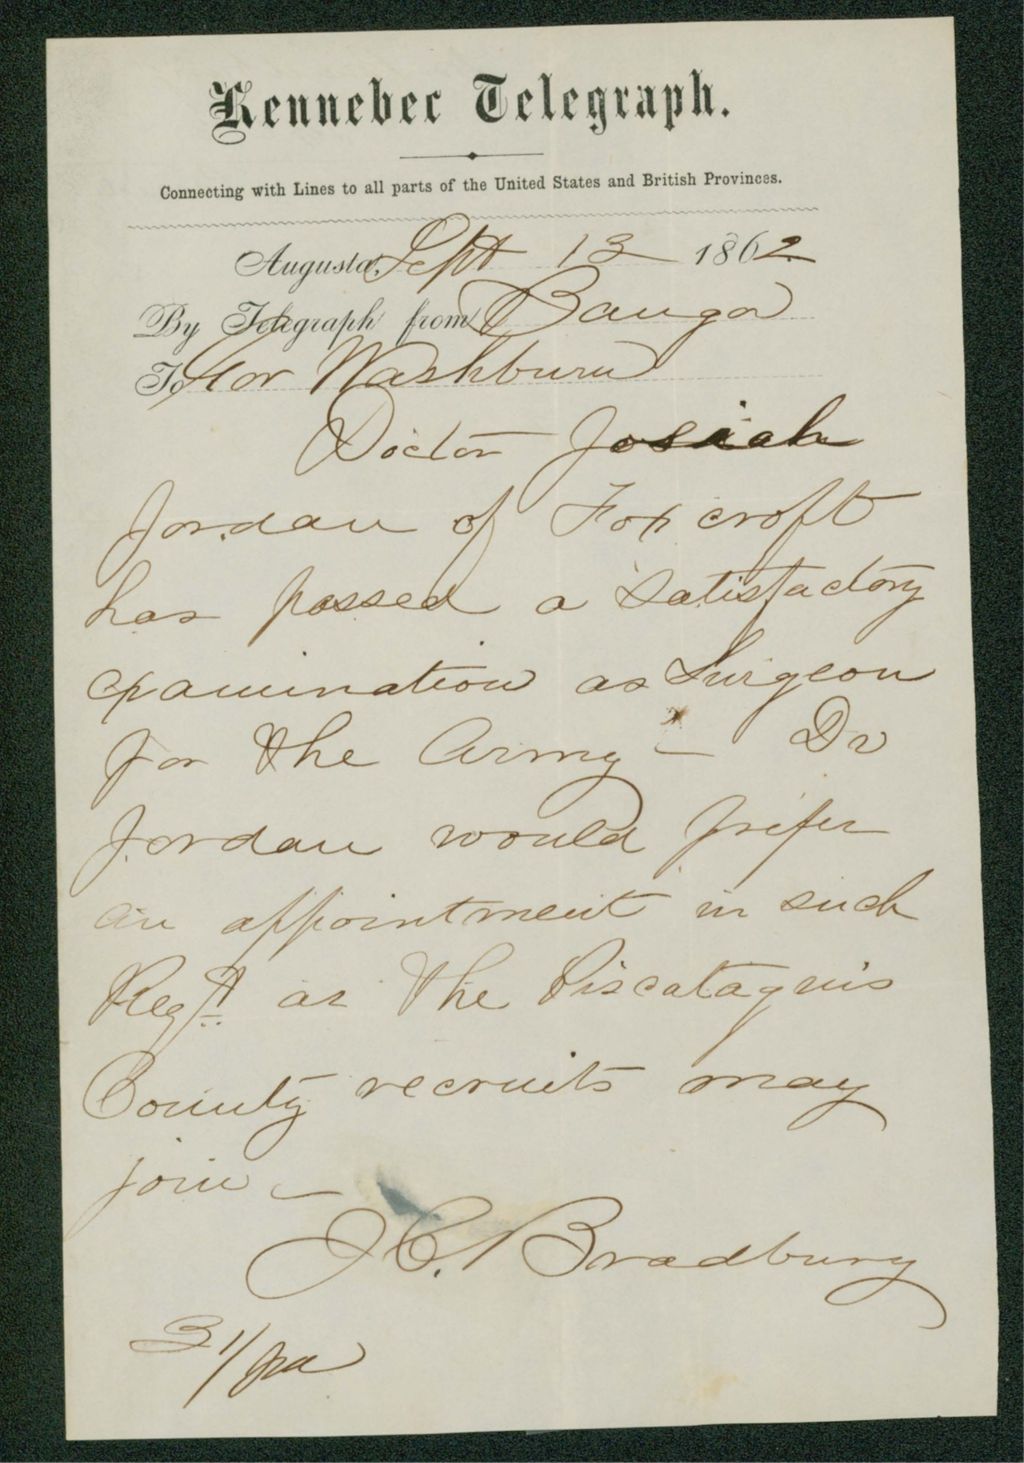 Kennebec Telegraph.
Connecting with Lines to all parts of the United States and British Provinces.
Augusta, Sept 13 1862
By Telegraph from Bangor
To Gov Washburn
Doctor Josiah
Jordan of Foxcroft
has passed a satisfactory
examination as Surgeon
for the Army – Dr
Jordan would prefer
an appointment in such
Regt as the Piscataquis
County recruits may
join –
J C. Bradbury
31/pd